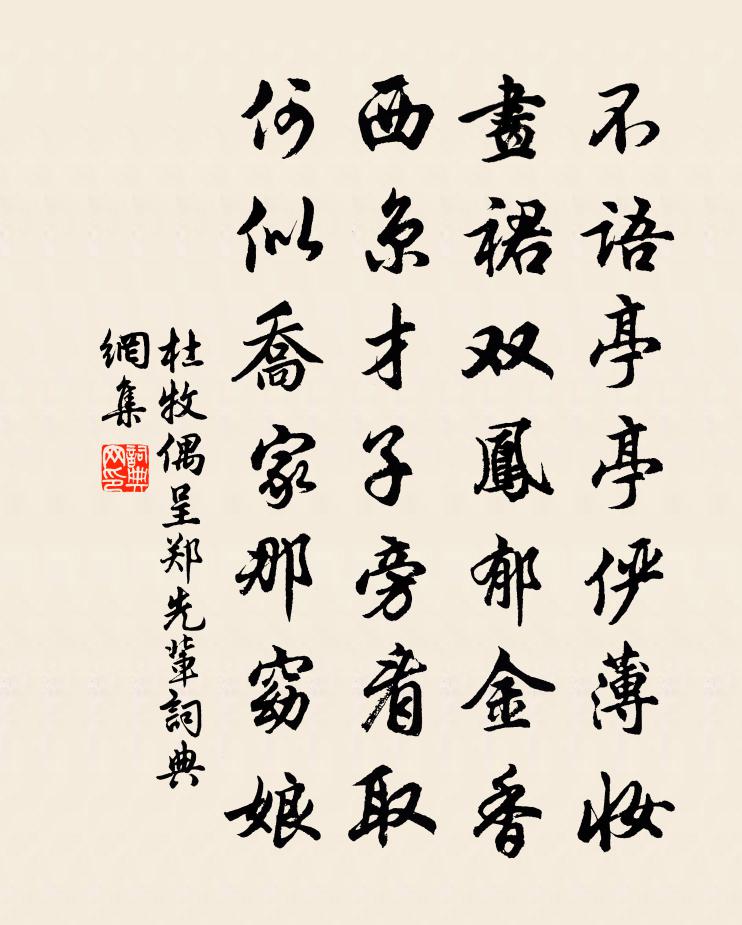 不语亭亭俨薄妆
畫裙双鳳郁金香
西京才子旁看取
何似喬家那窈娘
杜牧偶呈郑先輩詞典
網集
詞典网印